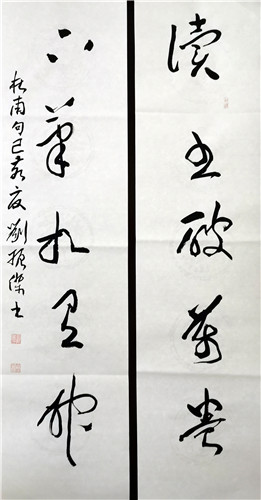 讀書破萬卷
下筆如有神
杜甫句己亥夏劉振傑書